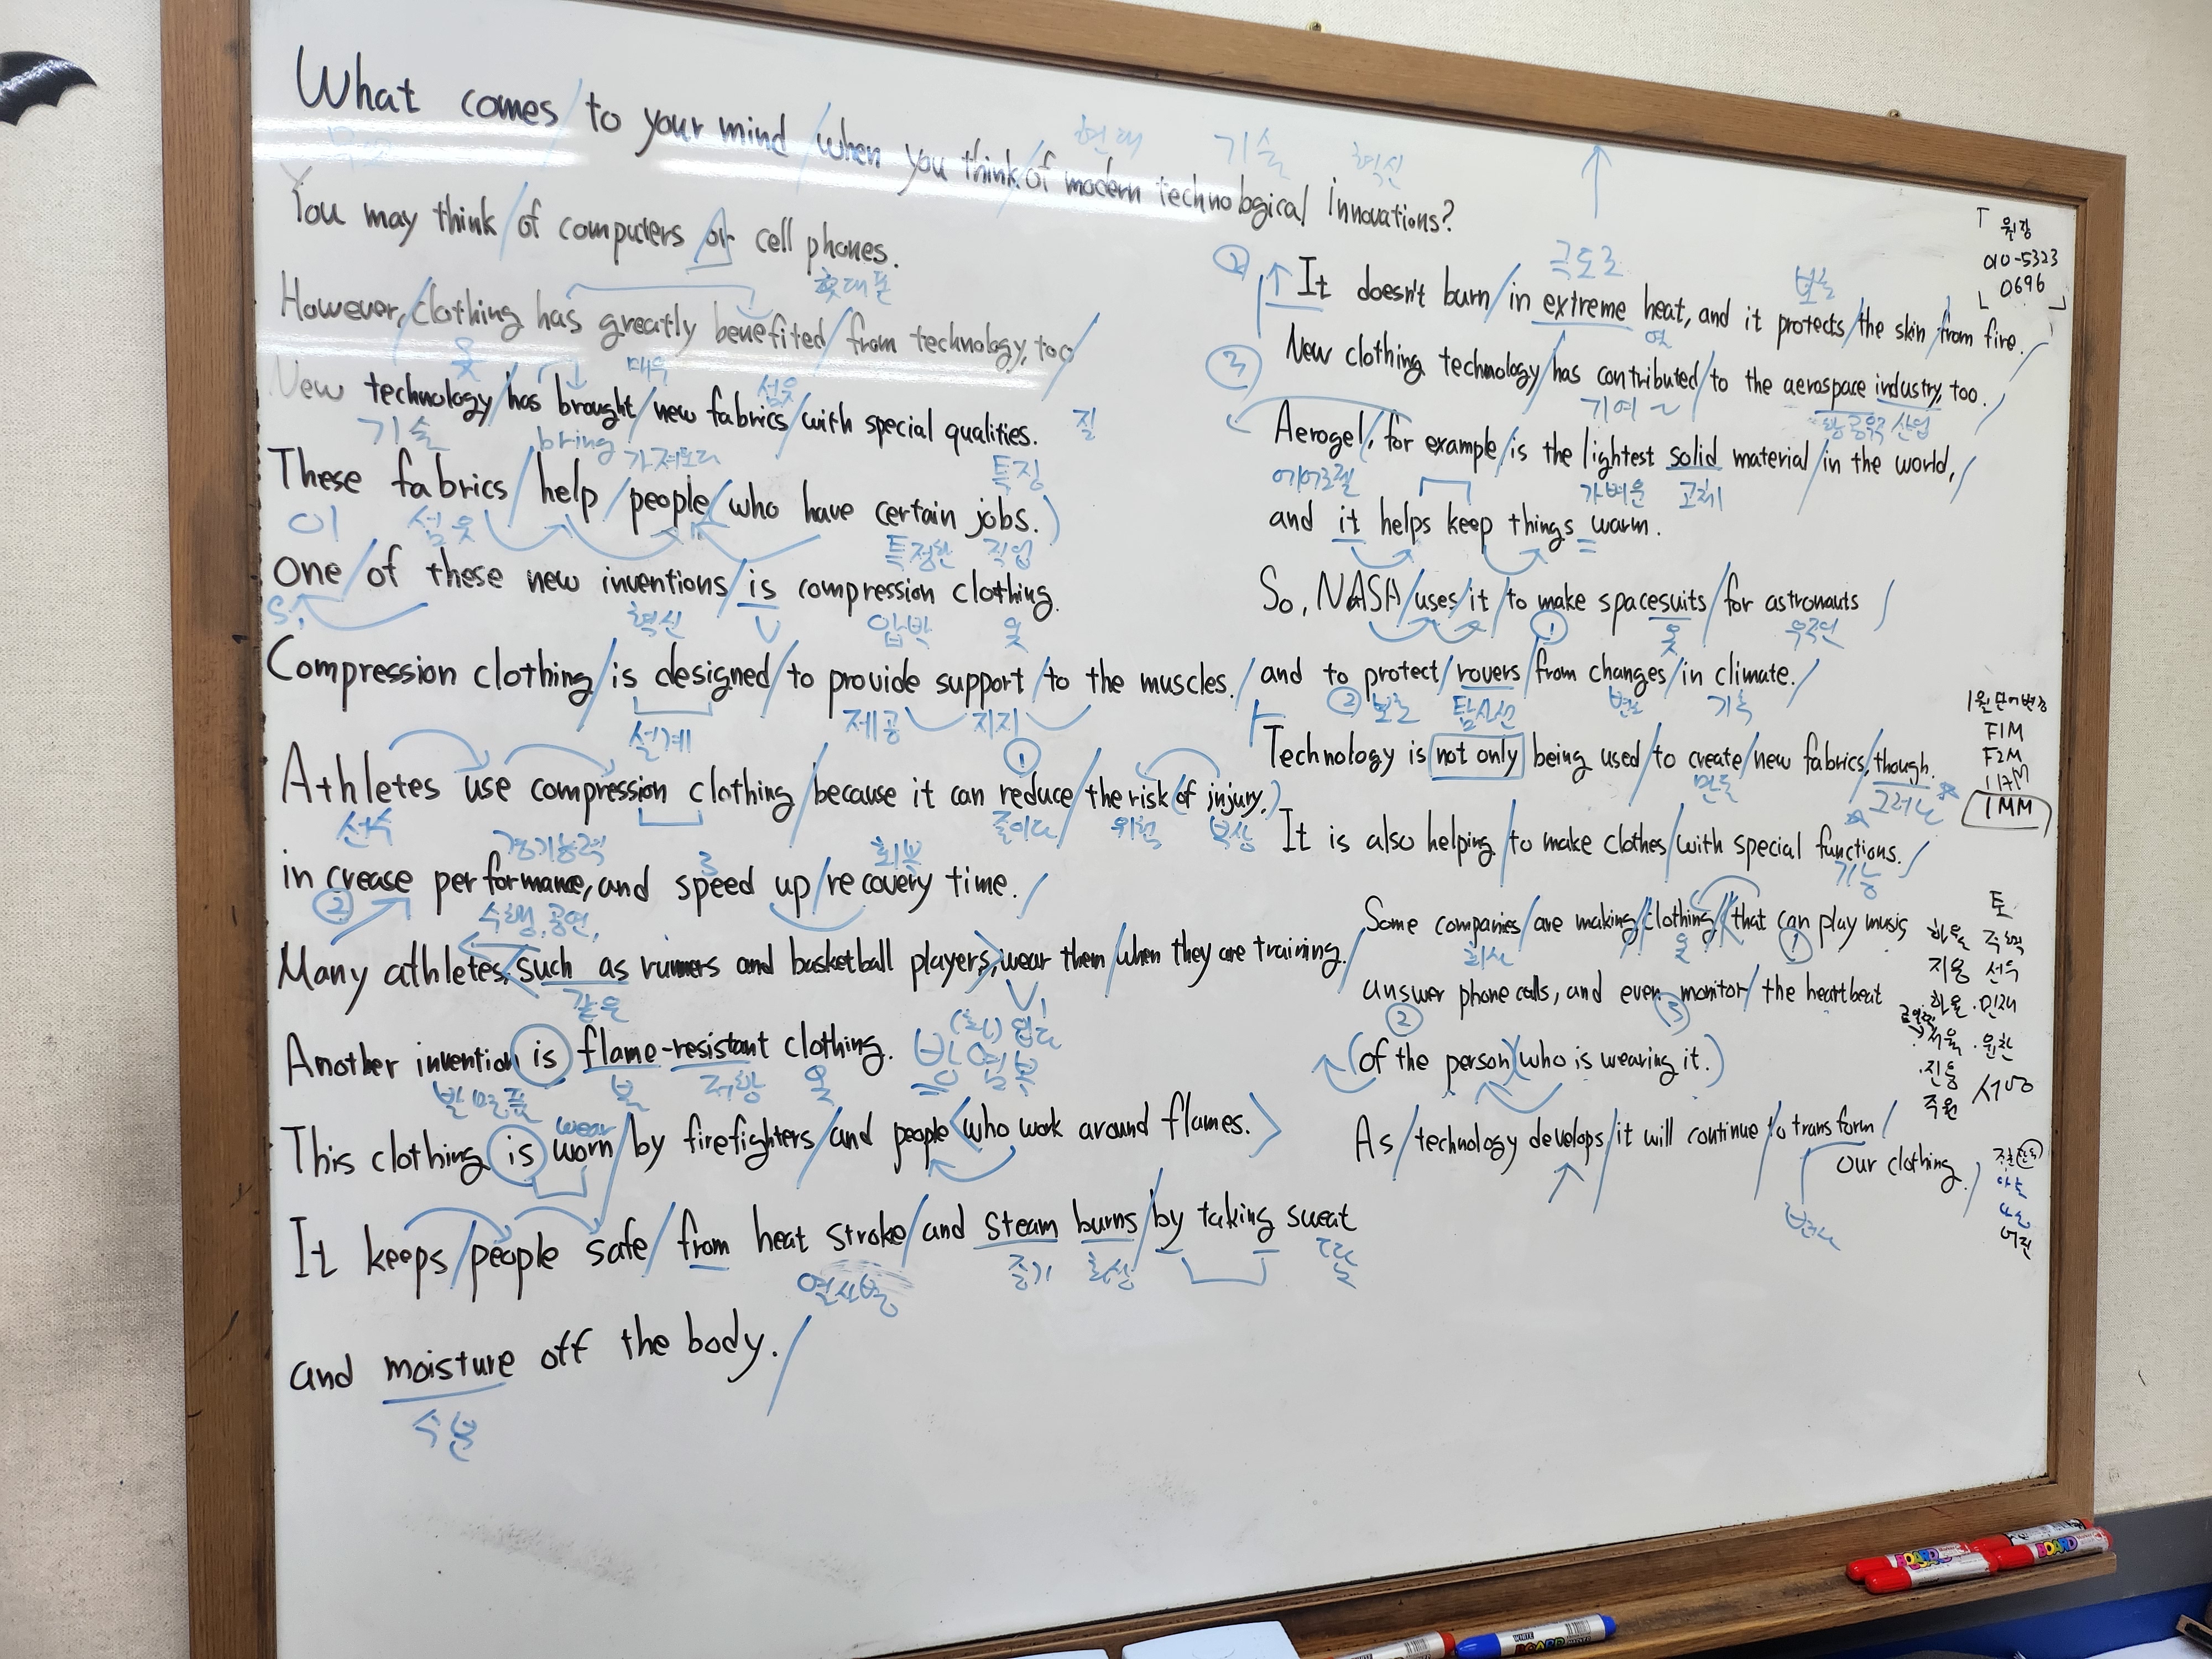 What comes to your mind when you think of modern technological innovations?
현대 기술 혁신
You may think of computers or cell phones.
휴대폰
However, clothing has greatly benefited from technology, too
옷 매우
New technology has brought new fabrics with special qualities.
섬유 질
기술 bring 가져오다 특징
These fabrics help people who have certain jobs.
이 섬유 특정한 직업
One of these new inventions is compression clothing.
S. 혁신 V 압박 옷
Compression clothing is designed to provide support to the muscles.
설계 제공 지지
Athletes use compression clothing because it can reduce the risk of injury,
선수 ① 줄이다 위험 부상
경기능력 3 회복
increase performance, and speed up recovery time.
② 수행, 공연,
Many athletes, such as runners and basketball players, wear them when they are training.
같은 V, 입다
Another invention is flame-resistant clothing.
발명품 불 저항 옷 방염복
wear
This clothing is worn by firefighters and people who work around flames.
It keeps people safe from heat stroke and steam burns by taking sweat
열사병 증기 화상 땀
and moisture off the body.
수분
② 극도로 보호
It doesn't burn in extreme heat, and it protects the skin from fire.
열
③ New clothing technology has contributed to the aerospace industry, too.
기여~ 항공우주 산업
Aerogel, for example, is the lightest solid material in the world,
에어로젤 가벼운 고체
and it helps keep things warm.
So, NASA uses it to make spacesuits for astronauts
① 옷 우주인
and to protect rovers from changes in climate.
② 보호 탐사선 변화 기후
Technology is not only being used to create new fabrics, though.
만들 그러나
It is also helping to make clothes with special functions.
기능
Some companies are making clothing that can play music,
회사 옷 ①
answer phone calls, and even monitor the heartbeat
② ③
(of the person who is wearing it.)
As technology develops, it will continue to transform
our clothing.
원장
010-5323
0696
1월 단어변경
F1M
F2M
1MM
토
하율
지용 선우
하율 · 민재
진용 서영
주원